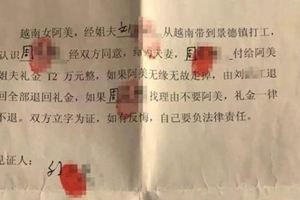 越南女阿美，经姐夫刘 从越南带到景德镇打工，
认识周 经双方同意， 夫妻，周 付给阿美
姐夫礼金 12 万元整，如果阿美无缘无故走掉，由刘 江退
回全部退回礼金，如果周 找理由不要阿美，礼金一律
不退。双方立字为证，如有反悔，自己要负法律责任。
见证人：